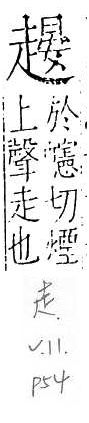 於幰切煙
上聲走也
走.
v.11.
p54